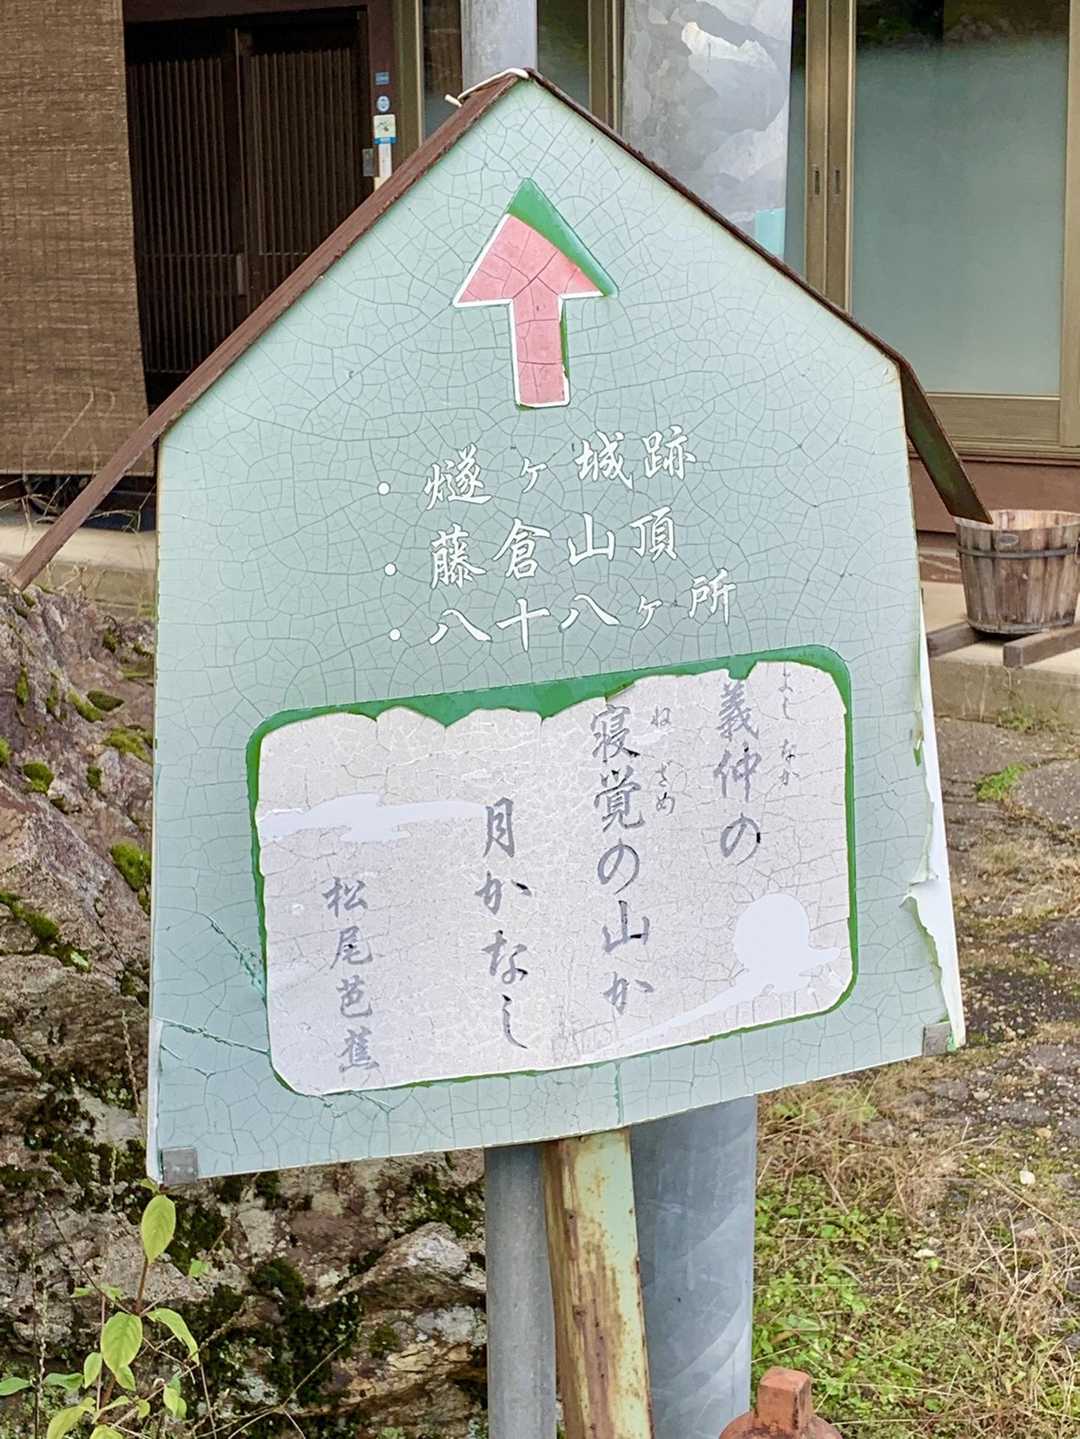 ・燧ヶ城跡
・藤倉山頂
・八十八ヶ所
義仲の
よしなか
寝覚の山か
ねざめ
月かなし
松尾芭蕉